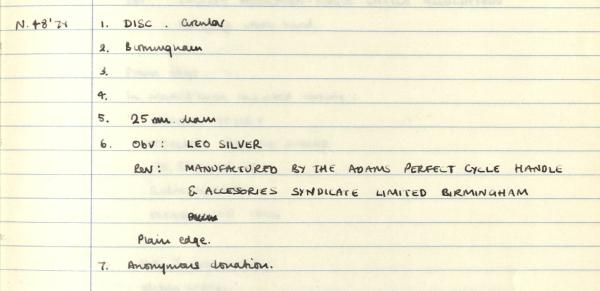 N. 48'71 1. DISC. Circular
2. Birmingham
3.
4.
5. 25 mm. diam
6. Obv: LEO SILVER
Rev: MANUFACTURED BY THE ADAMS PERFECT CYCLE HANDLE
& ACCESSORIES SYNDICATE LIMITED BIRMINGHAM
Plain edge.
7. Anonymous donation.